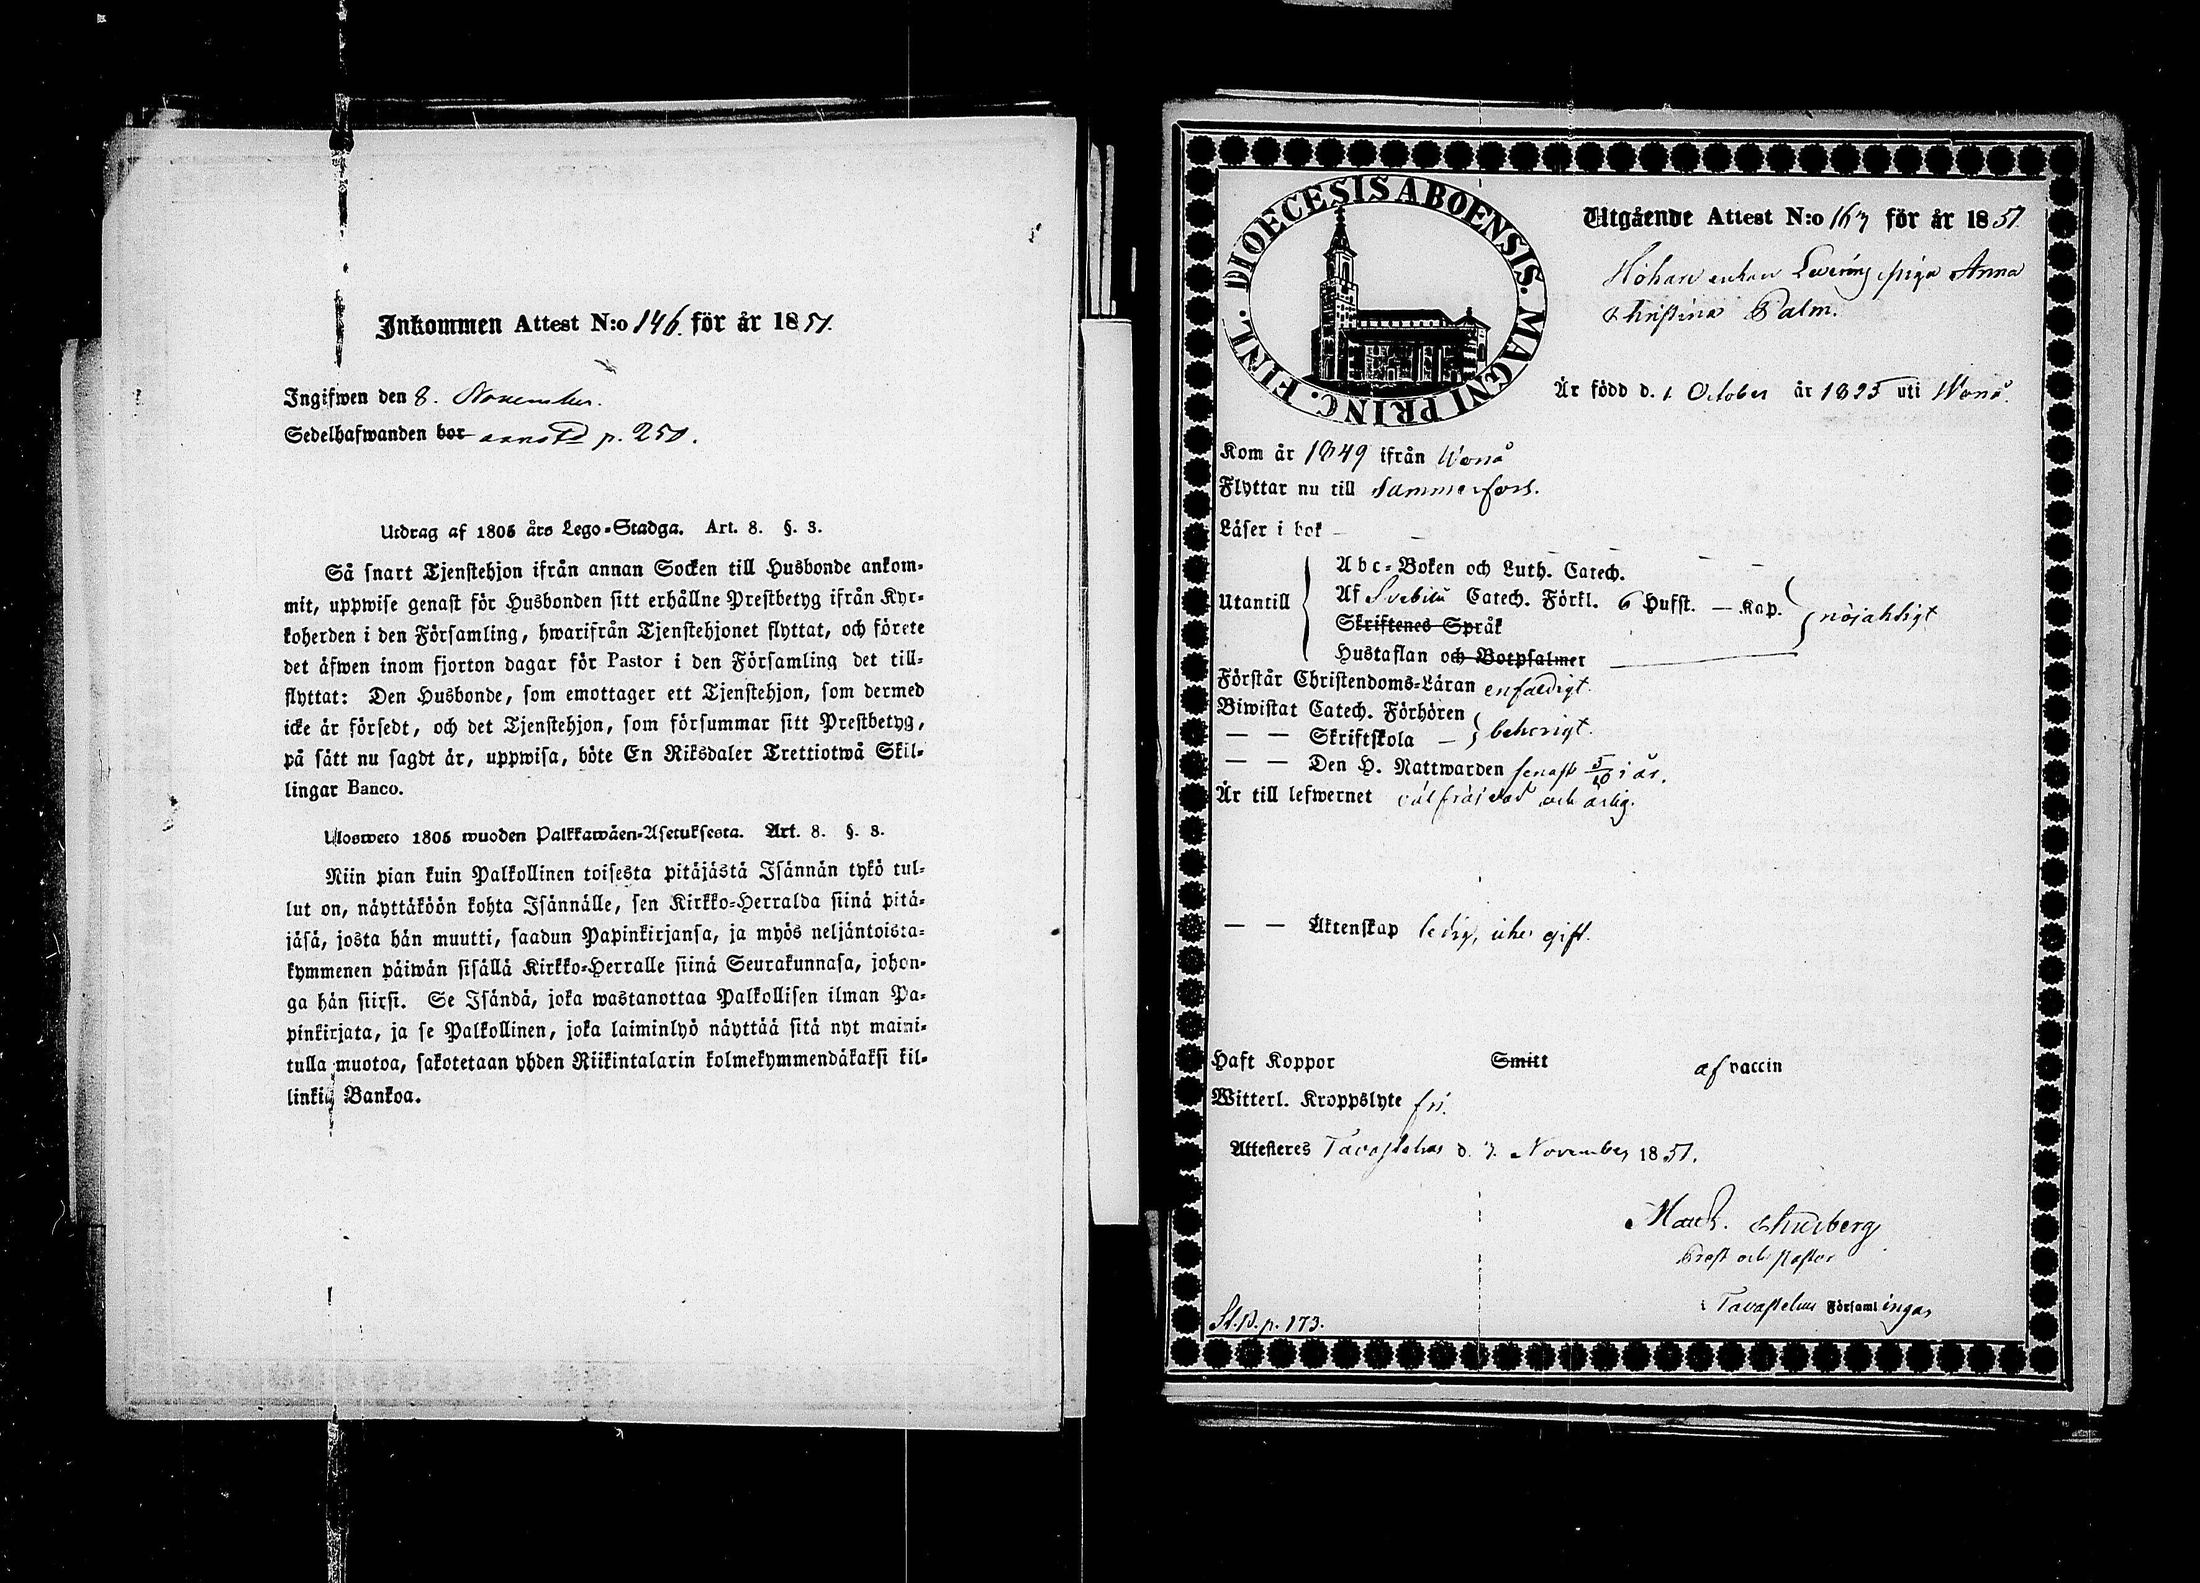 Inkommen Attest N:o 146. för år 1851.
Ingifwen den 8. November.
Sedelhafwanden bor p. 250.
Utdrag af 1805 års Lego-Stadga. Art. 8. §. 3.
Så snart Tjenstehjon ifrån annan Socken till Husbonde ankom-
mit, uppwise genast för Husbonden sitt erhållne Prestbetyg ifrån Kyr-
koherden i den Församling, hwarifrån Tjenstehjonet flyttat, och förete
det äfwen inom fjorton dagar för Pastor i den Församling det till-
flyttat: Den Husbonde, som emottager ett Tjenstehjon, som dermed
icke är försedt, och det Tjenstehjon, som försummar sitt Prestbetyg,
på sätt nu sagdt är, uppwisa, böte En Riksdaler Trettiotwå Skil-
lingar Banco.
Ulosweto 1805 wuoden Palkkawäen-Asetuksesta. Art. 8. §. 3.
Niin pian kuin Palkollinen toisesta pitäjästä Isännän tykö tul-
lut on, näyttäköön kohta Isännälle, sen Kirkko-Herralda siinä pitä-
jäsä, josta hän muutti, saadun Papinkirjansa, ja myös neljäntoista-
kymmenen päiwän sisällä Kirkko-Herralle siinä Seurakunnasa, johon-
ga hän siirsi. Se Isändä, joka wastanottaa Palkollisen ilman Pa-
pinkirjata, ja se Palkollinen, joka laiminlyö näyttää sitä nyt maini-
tulla muotoa, sakotetaan yhden Riikintalarin kolmekymmendäkaksi kil-
linkiä Bankoa.
DIOECESIS ABOENSIS. MAGNI PRINC. FINL.
Utgående Attest N:o 163 för år 1851.
piga Anna
Christina Palm.
Är född d. 1 October år 1825 uti Wånå.
Kom år 1849 ifrån Wånå
Flyttar nu till Tammerfors.
Läser i bok –
Abc-Boken och Luth. Catech.
Utantill Af Svebilii Catech. Förkl. 6 Hufst. — Kap. nöjaktigt
Skriftenes Språk
Hustaflan och Botpsalmer
Förstår Christendoms-Läran enfaldigt.
Biwistat Catech. Förhören
— — Skriftskola — behörigt.
— — Den H. Nattwarden senast 5/10 i år.
Är till lefwernet välfräjdad och ärlig.
— — Äktenskap ledig, icke gift.
Haft Koppor Smitt af vaccin
Witterl. Kroppslyte fri.
Attesteres Tavastehus d. 3. November 1851.
Prost och Pastor
i Tavastehus Församlingar
St.B. p. 173.